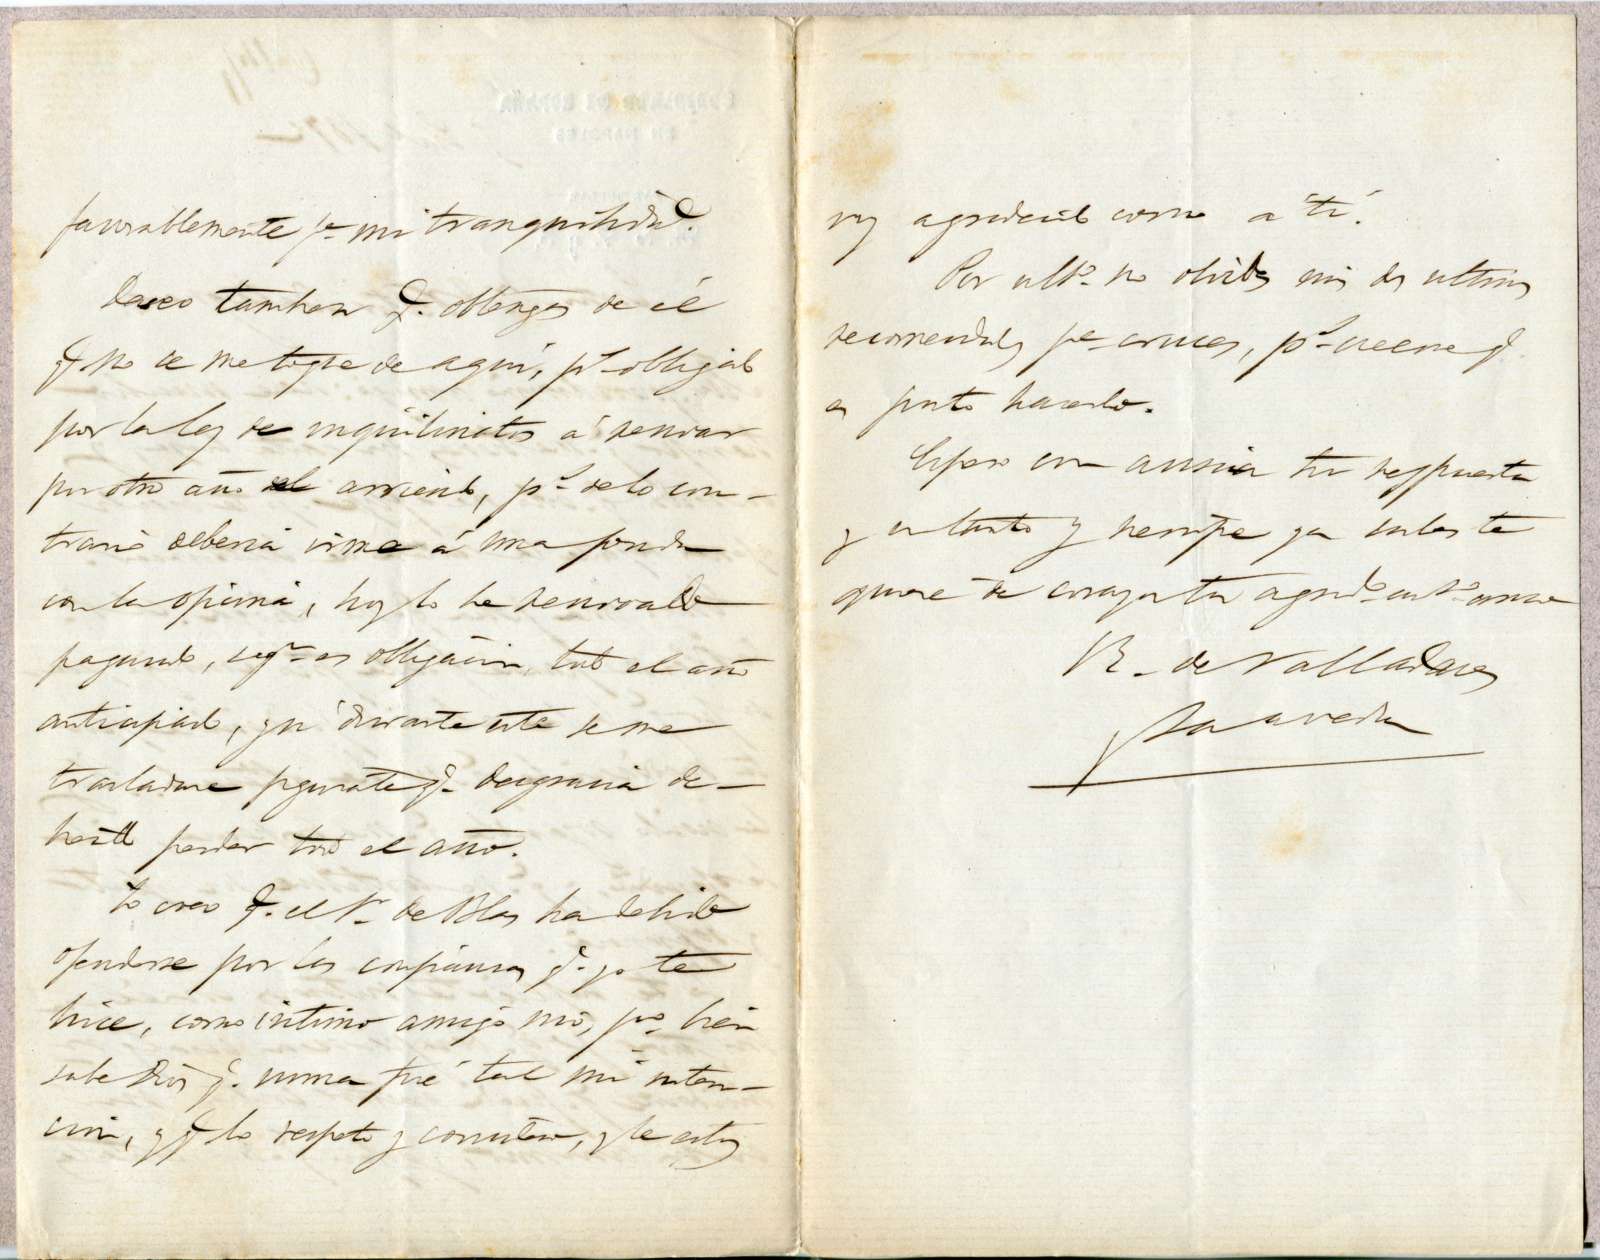 favorablemente pa. mi tranquilidad.
Deseo tambien q. obtengas de él
q. no se me toque de aquí, ps. obligado
por la ley de inquilinatos á renovar
por otro año el arriendo, ps. de lo con-
trario deberia irme á una fonda
con la oficina, hoy lo he renovado
pagando, segn. es obligacion, todo el año
anticipado, y si durante este se me
trasladase figurate q. desgracia se-
ria perder todo el año.
Yo creo q. el Sr. de Blas ha debido
ofenderse por las confianzas q. yo te
hice, como intimo amigo mio, po. bien
sabe Dios q. nunca fué tal mi inten-
cion, y q. lo respeto y considero, y le estoy
muy agradecido como a ti.
Por ulto. no olvides mis dos ultimas
recomendadas pa. cruces, ps. creeme q.
es justo hacerlo.
Espero con ansia tu respuesta
y en tanto y siempre ya sabes te
quiere de corazon tu agrado. anto. amigo
R. de Valladares
Saavedra